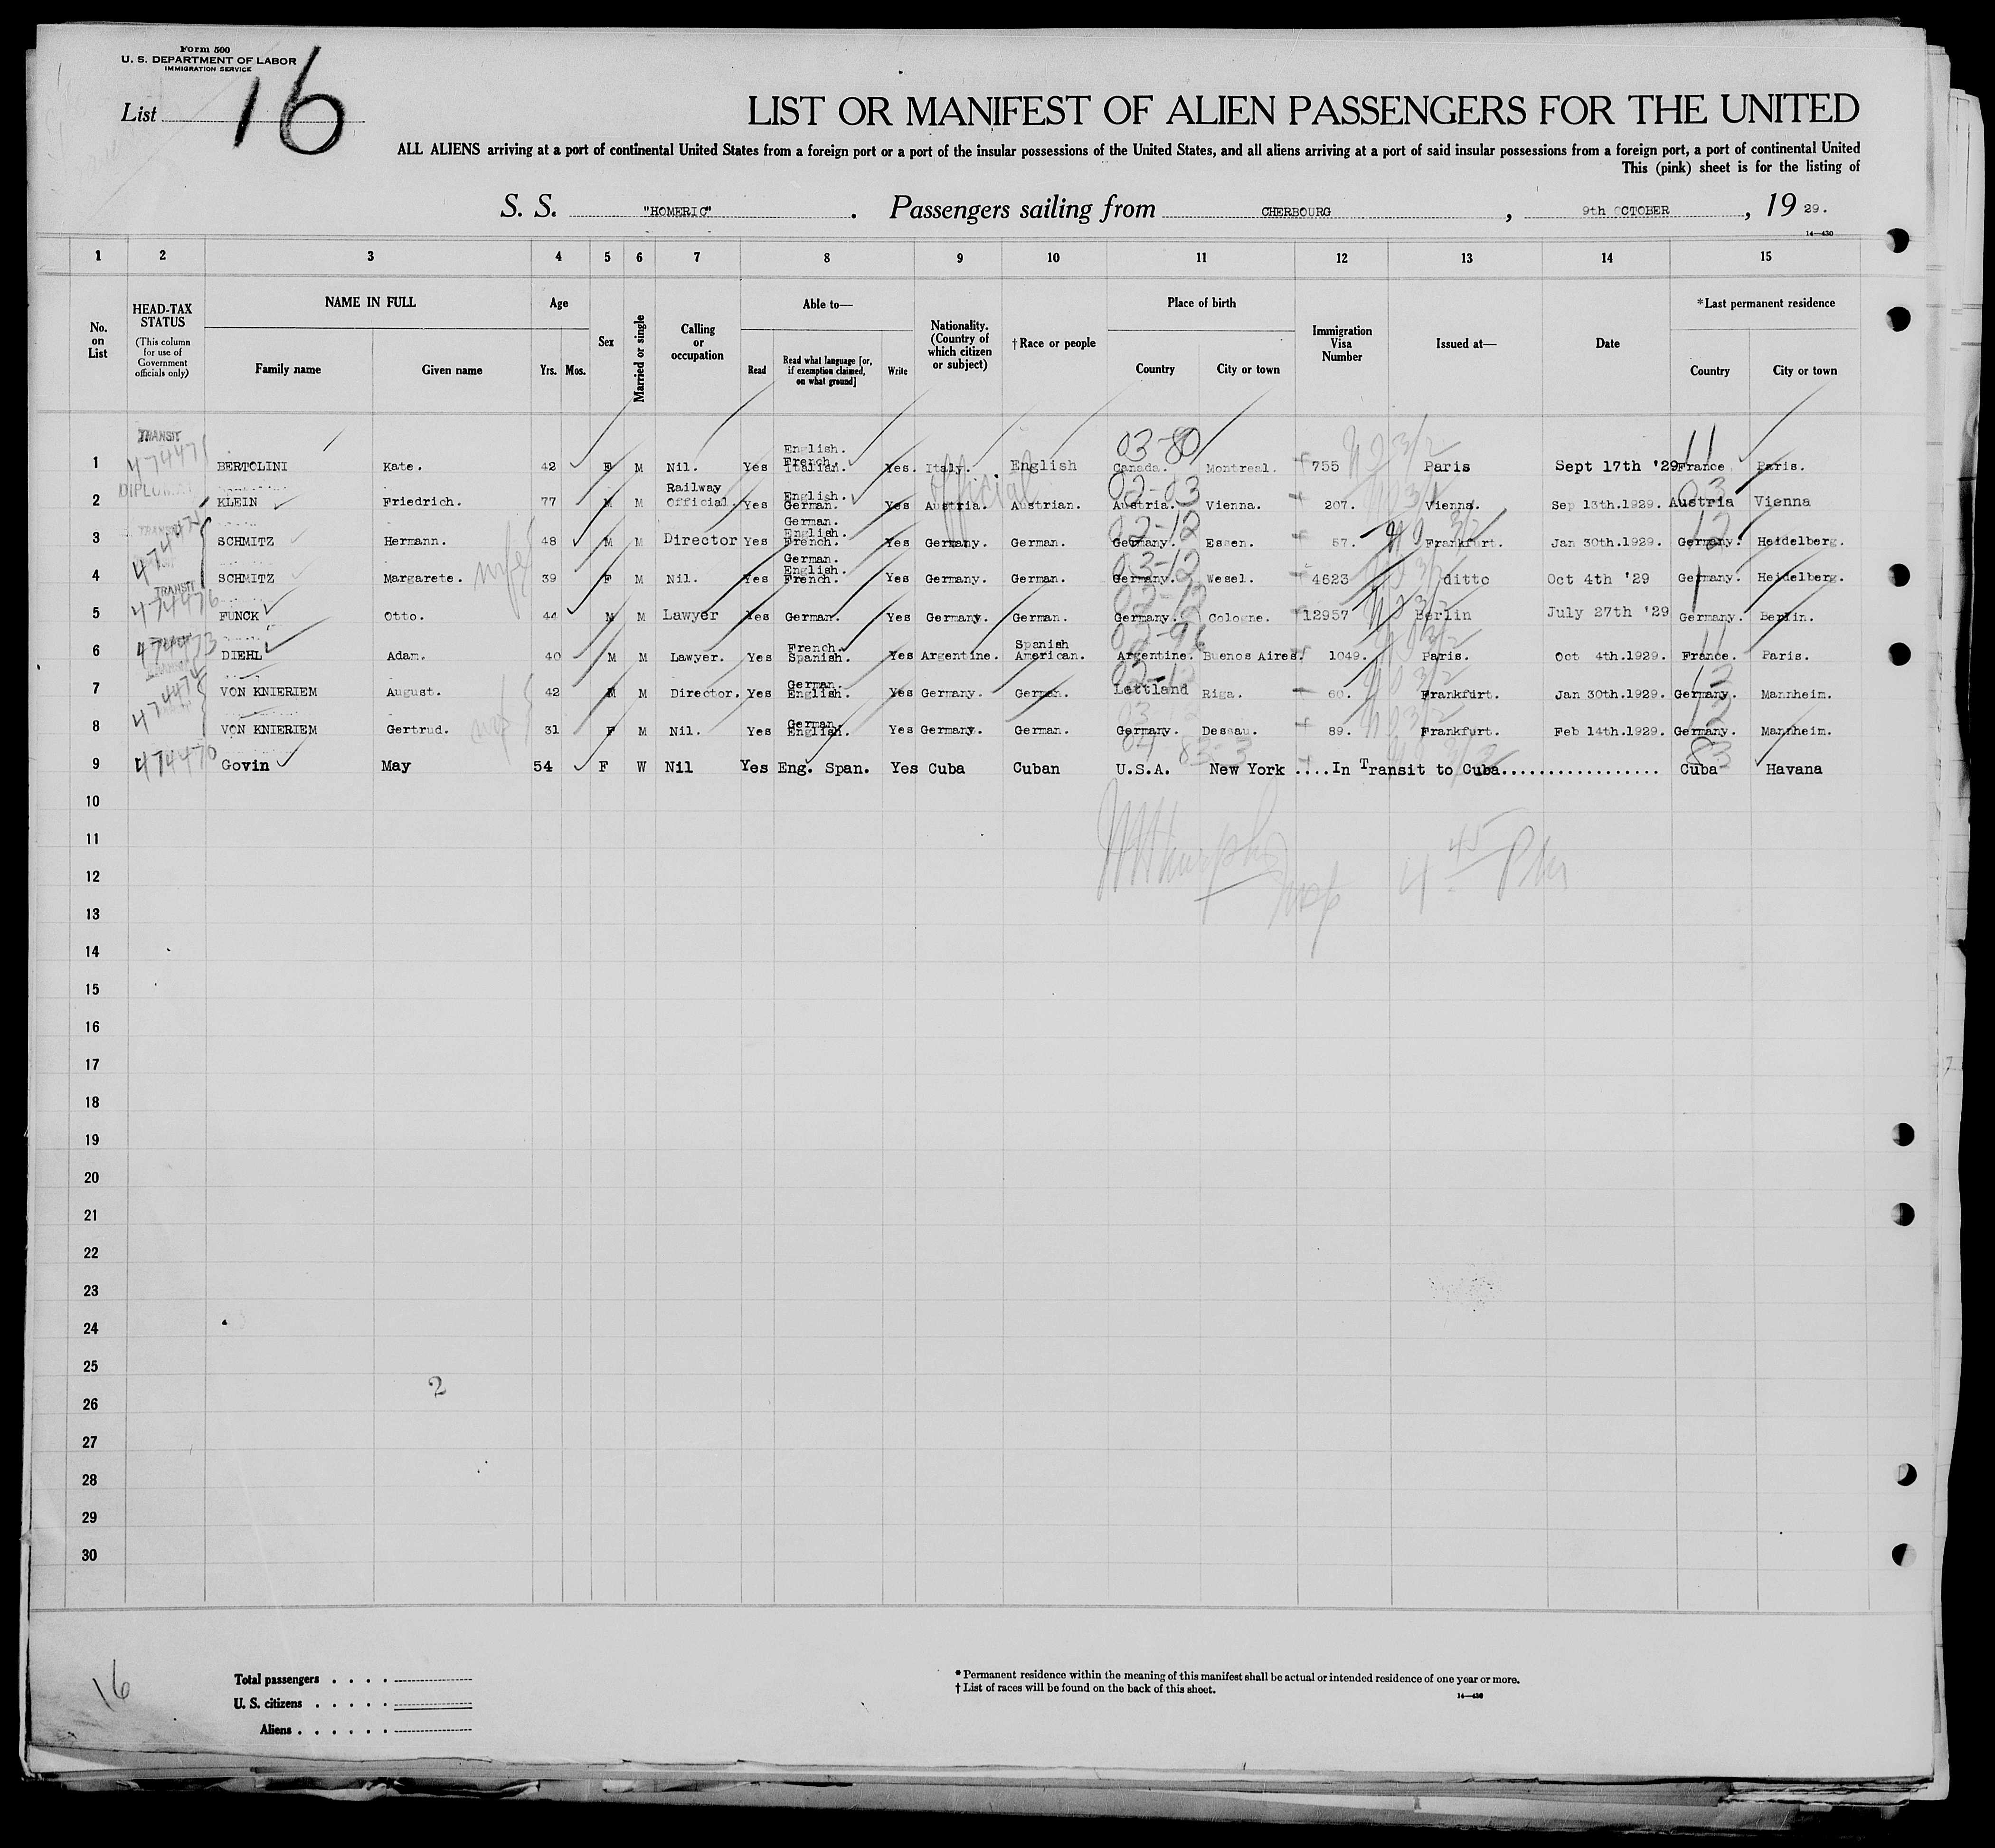 Form 500
U. S. DEPARTMENT OF LABOR
IMMIGRATION SERVICE
List 16
LIST OR MANIFEST OF ALIEN PASSENGERS FOR THE UNITED
ALL ALIENS arriving at a port of continental United States from a foreign port or a port of the insular possessions of the United States, and all aliens arriving at a port of said insular possessions from a foreign port, a port of continental United
This (pink) sheet is for the listing of
S. S. "HOMERIC". Passengers sailing from CHERBOURG, 9th OCTOBER, 19 29.
14—430
1 2 3 4 5 6 7 8 9 10 11 12 13 14 15
No. on List
HEAD-TAX STATUS (This column for use of Government officials only)
NAME IN FULL
Family name Given name
Age
Yrs. Mos.
Sex
Married or single
Calling or occupation
Able to—
Read Read what language [or, if exemption claimed, on what ground] Write
Nationality. (Country of which citizen or subject)
†Race or people
Place of birth
Country City or town
Immigration Visa Number
Issued at—
Date
*Last permanent residence
Country City or town
TRANSIT 03-80 11
1 474471 BERTOLINI Kate. 42 F M Nil. Yes English. French. Italian. Yes. Italy. English Canada. Montreal. 755 Paris Sept 17th '29 France Paris.
DIPLOMAT official 02-03 03
2 KLEIN Friedrich. 77 M M Railway Official. Yes English. German. Yes Austria. Austrian. Austria. Vienna. 207. Vienna. Sep 13th.1929. Austria Vienna
TRANSIT 02-12 12
3 SCHMITZ Hermann. 48 M M Director Yes German. English. French. Yes Germany. German. Germany. Essen. 57. Frankfurt. Jan 30th.1929. Germany. Heidelberg.
wife 03-12
4 SCHMITZ Margarete. 39 F M Nil. Yes German. English. French. Yes Germany. German. Germany. Wesel. 4623 ditto Oct 4th '29 Germany. Heidelberg.
TRANSIT 02-12
5 474476 FUNCK Otto. 44 M M Lawyer Yes German. Yes Germany. German. Germany. Cologne. 12957 Berlin July 27th '29 Germany. Berlin.
02-96 11
6 474473 DIEHL Adam. 40 M M Lawyer. Yes French. Spanish. Yes Argentine. Spanish American. Argentine. Buenos Aires. 1049. Paris. Oct 4th.1929. France. Paris.
12
7 VON KNIERIEM August. 42 M M Director. Yes German. English. Yes Germany. German. Lettland Riga. 60. Frankfurt. Jan 30th.1929. Germany. Mannheim.
12
8 VON KNIERIEM Gertrud. 31 F M Nil. Yes German. English. Yes Germany. German. Germany. Dessau. 89. Frankfurt. Feb 14th.1929. Germany. Mannheim.
04 83-3 83
9 474470 Govin May 54 F W Nil Yes Eng. Span. Yes Cuba Cuban U.S.A. New York ....In Transit to Cuba................. Cuba Havana
10
11
4 45 PM
12
13
14
15
16
17
18
19
20
21
22
23
24
25
2
26
27
28
29
30
16
Total passengers . . . .
U. S. citizens . . . . .
Aliens . . . . . .
* Permanent residence within the meaning of this manifest shall be actual or intended residence of one year or more.
† List of races will be found on the back of this sheet.
14—430